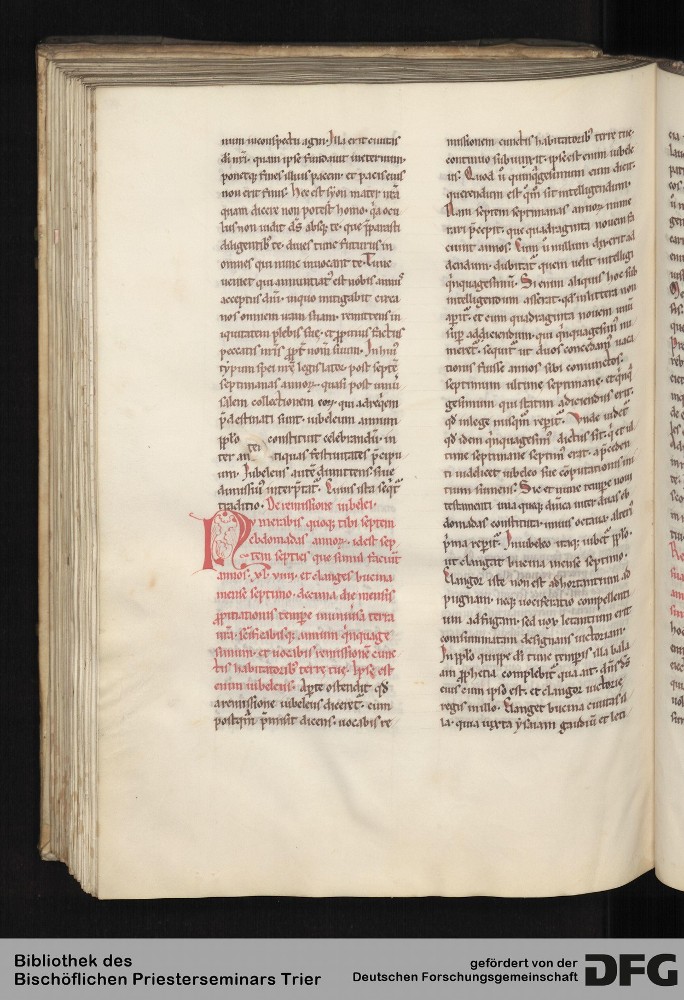 num inconspectu agni. Illa erit ciuitas
di nr̄i. quam ipse fundauit ineternum.
ponetq; fines illius pacem. et pacis eius
non erit finis. Hec est syon mater nr̄a
quam dicere non potest homo. q̇a ocu
lus non uidit ds̄ absq; te. que p̄parasti
diligentib; te. diues tunc futurus in
omnes qui nunc inuocant te. Tunc
ueniet qui annunciat᷒ est nobis ann᷒
acceptus dn̄i. inquo mitigabit circa
nos omnem iram suam. remittens in
iquitatem plebis sue. et ꝓpitius factus
peccatis nr̄is ꝓpt̄ nom̄ suum. In hui᷒
typum spei nr̄e legislator post septē
septimanas annoꝝ. quasi post uniū
salem collectionem eoꝝ. qui adreq̇em
p̄destinati sunt. iubeleum annum
pp̄lo dei constituit celebrandū. in
ter antiquas festiuitates p̄cipu
um. Iubeleus autē dimittens. siue
dimissiuus interp̄tat᷒. Cuius ista seq̇t᷒
traditio. De remissione iubelei.
Numerabis quoq; tibi septem
ebdomadas annoꝝ. idest sep
tem septies que simul faciunt
annos. xl. viiii. et clanges bucina
mense septimo. decima die mensis
ꝓpitiationis tempore inuniūsa terra
ur̄a. scīficabisq; annum q̇nquage
simum. et uocabis remissionē cunc
tis habitatorib; terre tue. Ipse est
enim iubeleus. Aperte ostendit qd̄
aremissione iubeleus diceret᷒. cum
postq̄m p̄misit dicens. uocabis re
missionem cunctis habitatorib; terre tue.
continuo subiunxit. ipse est enim iubele
us. Quod u̇ quinq̇gesimum eum dicit.
querendum est q̄m sit intelligendum.
Nam septem septimanas annoꝝ nume
rari p̄cepit. que quadraginta nouem fa
ciunt annos. Cum u̇ nullum dix̄erit ad
dendum. dubitat᷒ quem uelit intelligi
q̇nquagesimū. Si enim aliquis hoc sub
intelligendum asserat. qd̄ inlittera non
aperit᷒. et cum quadraginta nouem unū
sup̄ addiciendum. qui q̇nquagesim᷒ nu
meret᷒. sequit᷒ ut duos concedam᷒ uaca
tionis fuisse annos sibi coniunctos.
septimum ultime septimane. et q̇nq̇
gesimum qui statim adiciendus erit.
qd̄ inlege nusq̄m repperit᷒. Vnde uidet᷒
qd̄ idem q̇nquagesim᷒ dictus sit. q̇ et ul
time septimane septim᷒ erat. aprecedem
ti uidelicet iubeleo sue cōputationis ini
tium sumens. Sic et nunc tempore noui
testamenti una queq; dn̄ica inter duas eb
domadas constituta. unius octaua. alteri᷒
p̄ma reperit᷒. Iniubeleo itaq; iubet᷒ pp̄lo.
ut clangat bucina mense septimo.
Clangor iste non est adhortantium ad
pugnam. neq; uociferatio compellenti
um adfugam. sed uox letantium erit
consummatam designans uictoriam.
In pp̄lo quippe di tunc temporis illa bala
am ꝓphetia complebit᷒ qua ait. dn̄s ds̄
eius cum ipso est. et clangor uictorie
regis inillo. Clanget bucina ciuitas il
la. quia iuxta ysaiam gaudiū et leti
Bibliothek des
Bischöflichen Priesterseminars Trier
gefördert von der
Deutschen Forschungsgemeinschaft
DFG